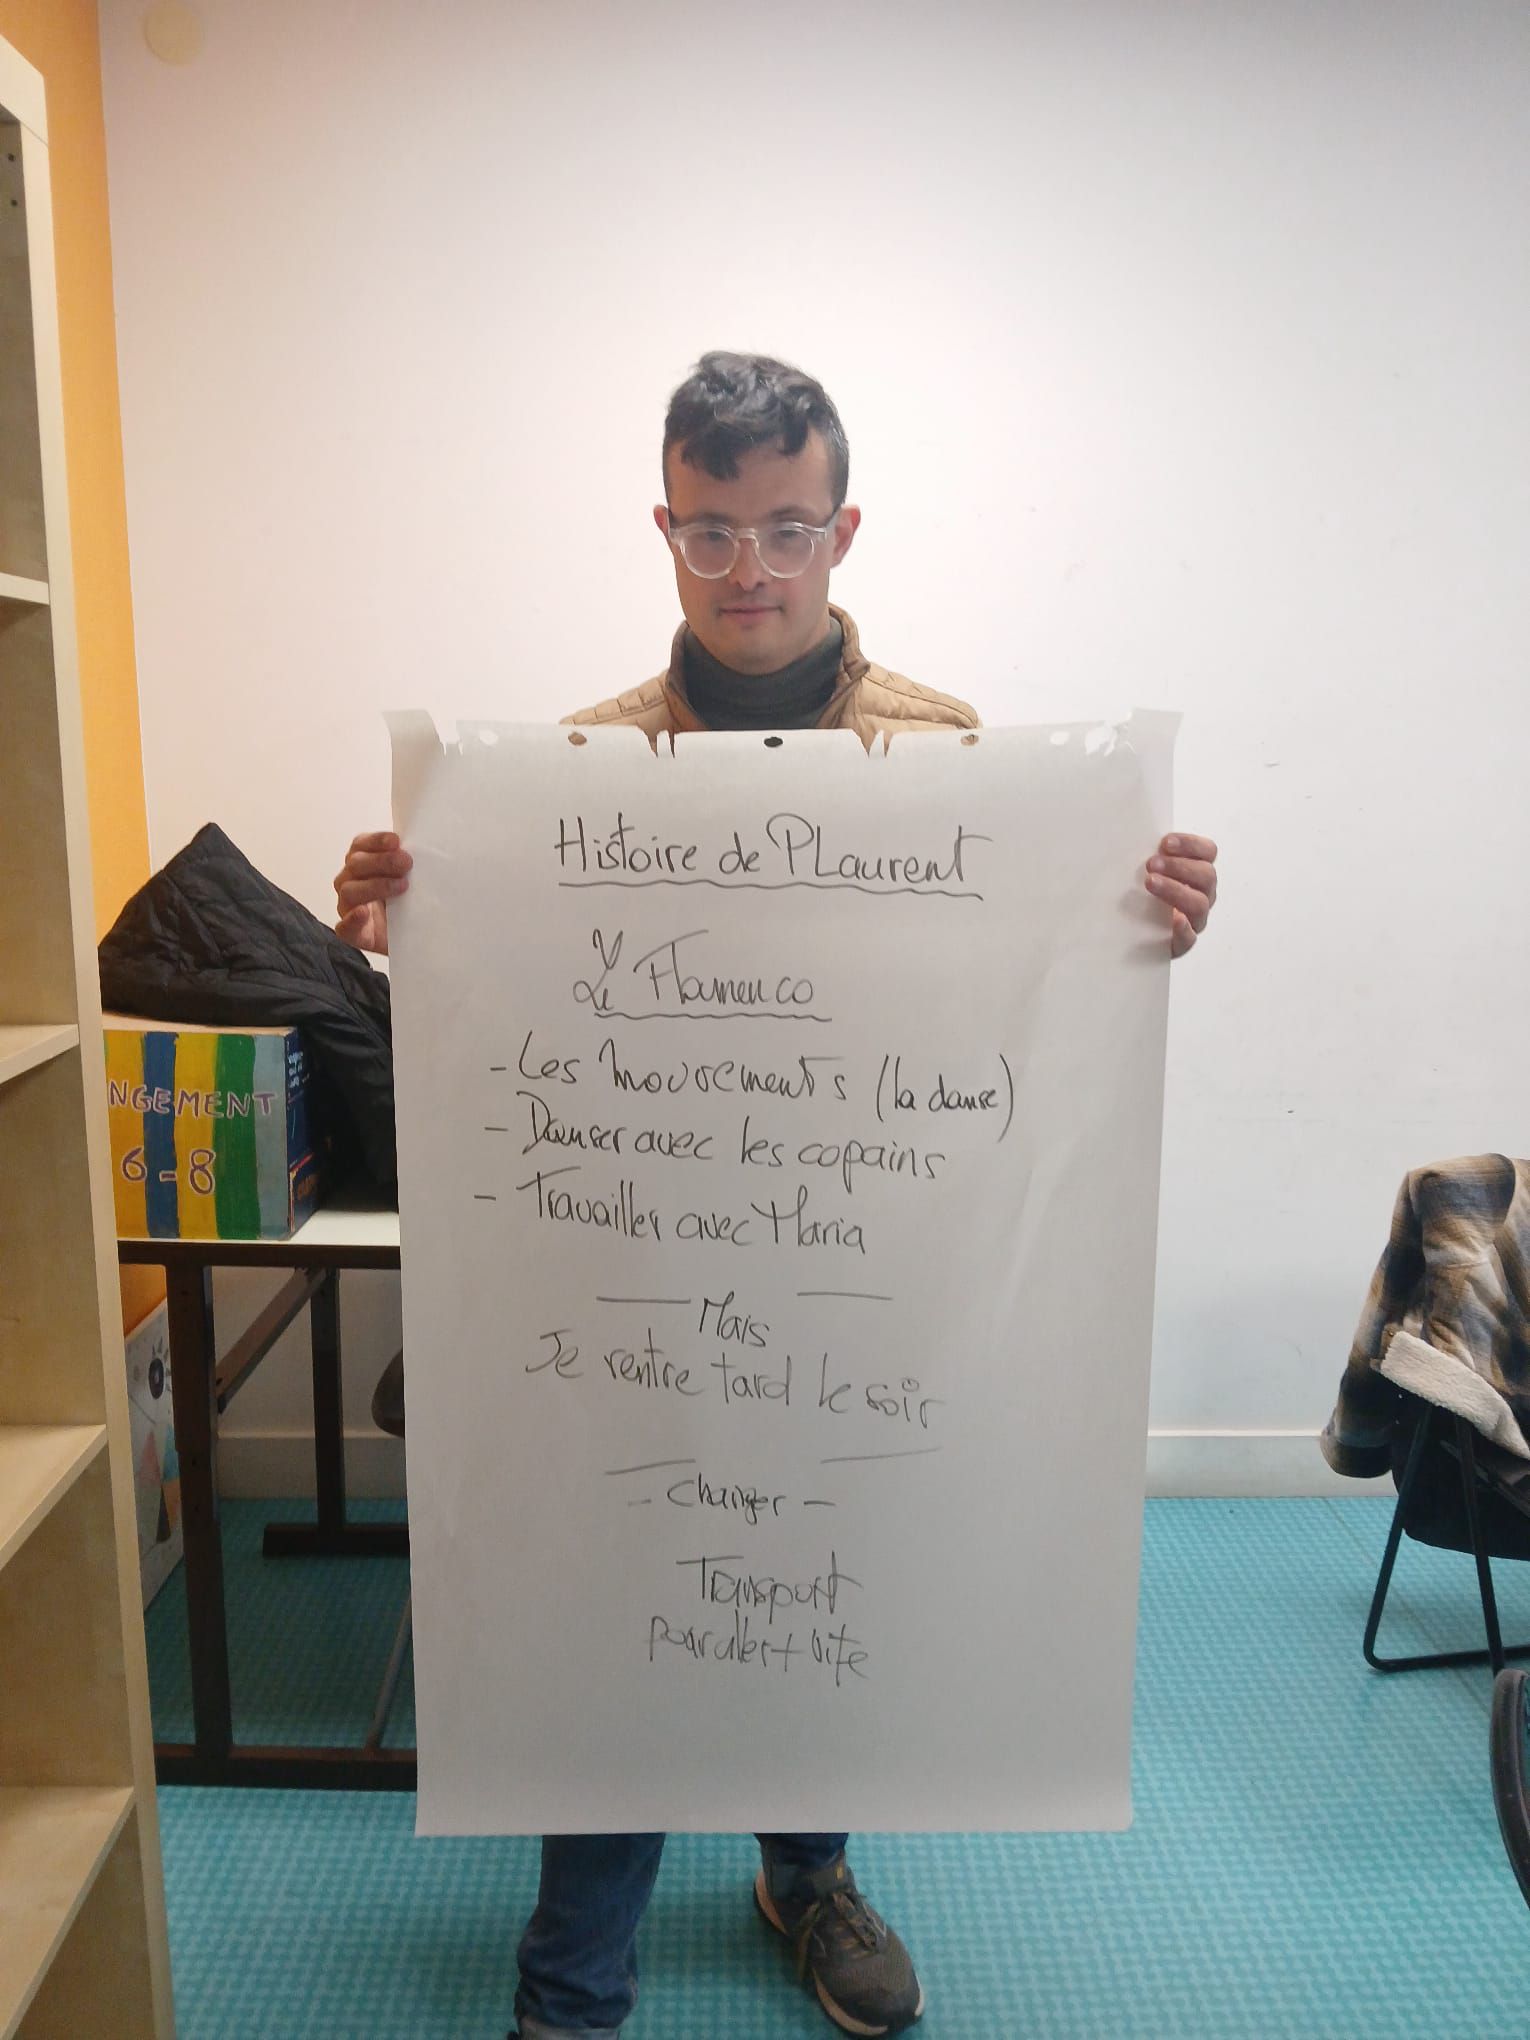 Histoire de PLaurent
Le Flamenco
- Les mouvements (la danse)
- Danser avec les copains
- Travailler avec Maria
Mais
Je rentre tard le soir
- Changer -
Transport
pour aller + vite
NGEMENT
6-8